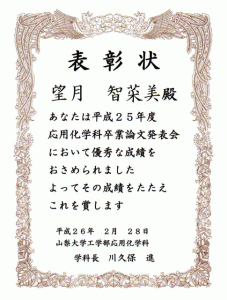 表彰状
望月 智菜美殿
あなたは平成２５年度
応用化学科卒業論文発表会
において優秀な成績を
おさめられました
よってその成績をたたえ
これを賞します
平成２６年 ２月 ２８日
山梨大学工学部応用化学科
学科長 川久保 進